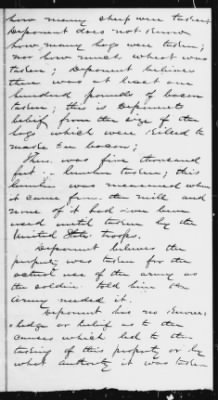 how many sheep were taken
Deponent does not know
how many hogs were taken;
nor how much wheat was
taken; Deponent believes
there was at least one
hundred pounds of bacon
taken; this is Deponents
belief from the size of the
hogs which were killed to
make the bacon;
There was five thousand
feet of lumber taken; this
lumber was measured when
it come from the mill and
none of it had ever been
used until taken by the
United States troops.
Deponent believes the
property was taken for the
actual use of the army as
the soldiers told him the
Army needed it.
Deponent has no know-
ledge or belief as to the
causes which led to the
taking of this property or by
what authority it was taken